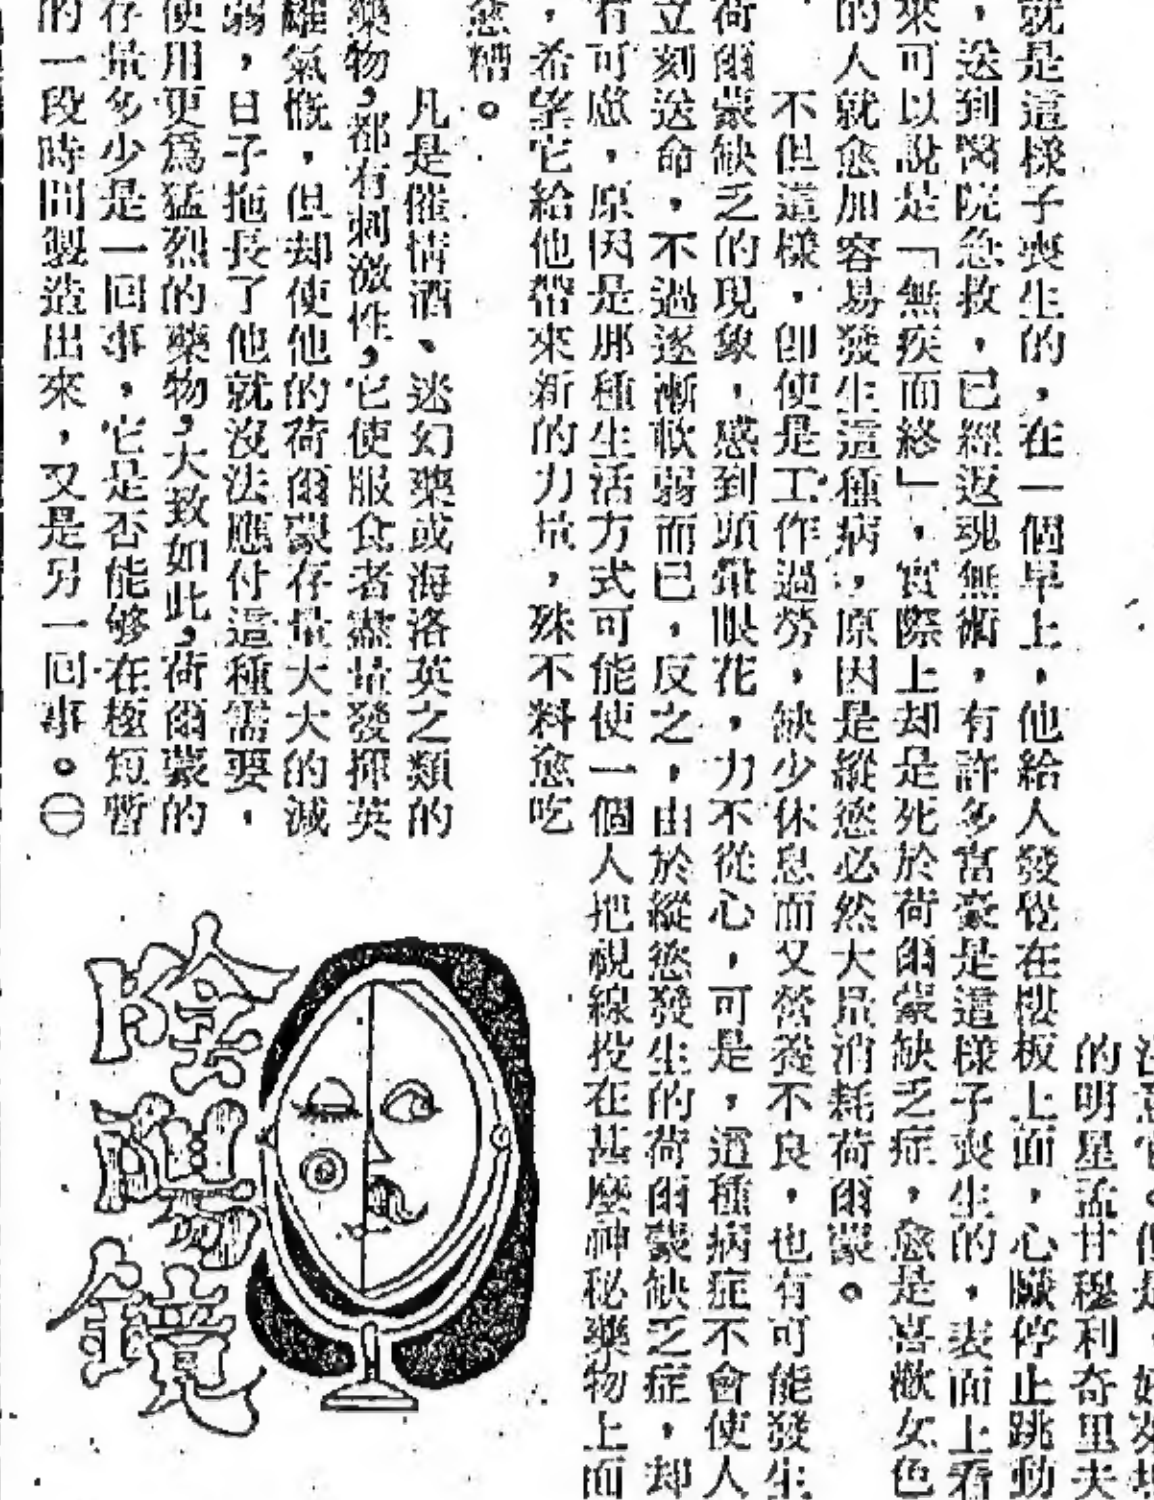 的明星孟甘穆利奇里夫
就是這樣子喪生的，在一個早上，他給人發覺在樓板上面，心臟停止跳動
，送到醫院急救，已經返魂無術，有許多富豪是這樣子喪生的，表面上看
來可以說是「無疾而終」，實際上却是死於荷爾蒙缺乏症，愈是喜歡女色
的人就愈加容易發生這種病，原因是縱慾必然大量消耗荷爾蒙。
不但這樣，即使是工作過勞，缺少休息而又營養不良，也有可能發生
荷爾蒙缺乏的現象，感到頭暈眼花，力不從心，可是，這種病症不會使人
立刻送命，不過逐漸軟弱而已，反之，由於縱慾發生的荷爾蒙缺乏症，却
有可慮，原因是那種生活方式可能使一個人把視線投在甚麼神秘藥物上面
，希望它給他帶來新的力量，殊不料愈吃
愈糟。
凡是催情酒、迷幻藥或海洛英之類的
藥物，都有刺激性，它使服食者盡量發揮英
雄氣慨，但却使他的荷爾蒙存量大大的減
弱，日子拖長了他就沒法應付這種需要，
使用更爲猛烈的藥物，大致如此，荷爾蒙的
存量多少是一回事，它是否能够在極短暫
的一段時間製造出來，又是另一回事。㊀
陰陽鏡